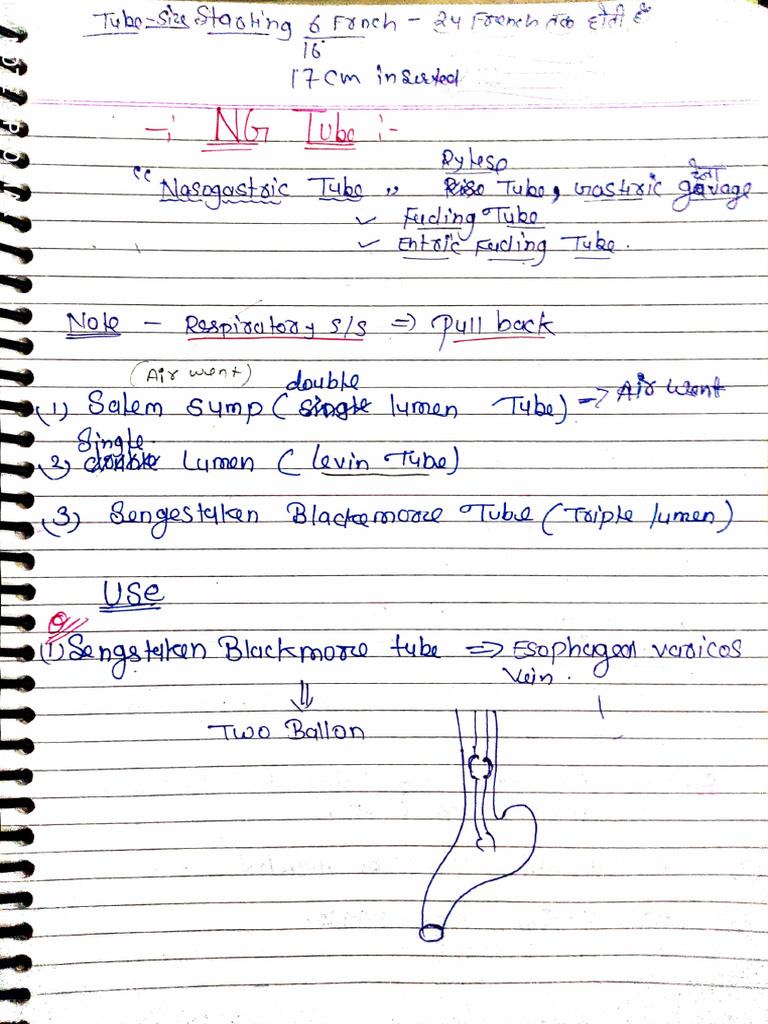 Tube-Size Starting 6 French - 24 French तक होती है
16
17 cm inserted
-: NG Tube :-
Ryles
"Nasogastric Tube" Tube, Gastric gavage देना
✓ Feeding Tube
✓ Entric Feeding Tube.
Note - Respiratory s/s => Pull back
(Air went) double
(1) Salem sump (single lumen Tube) -> Air went
Single
2) double lumen (levin Tube)
(3) Sengestaken Blackemore Tube (Triple lumen)
Use
Q
(1) Sengstaken Blackmore tube => Esophageal varicos
Vein.
⇓
Two Ballon